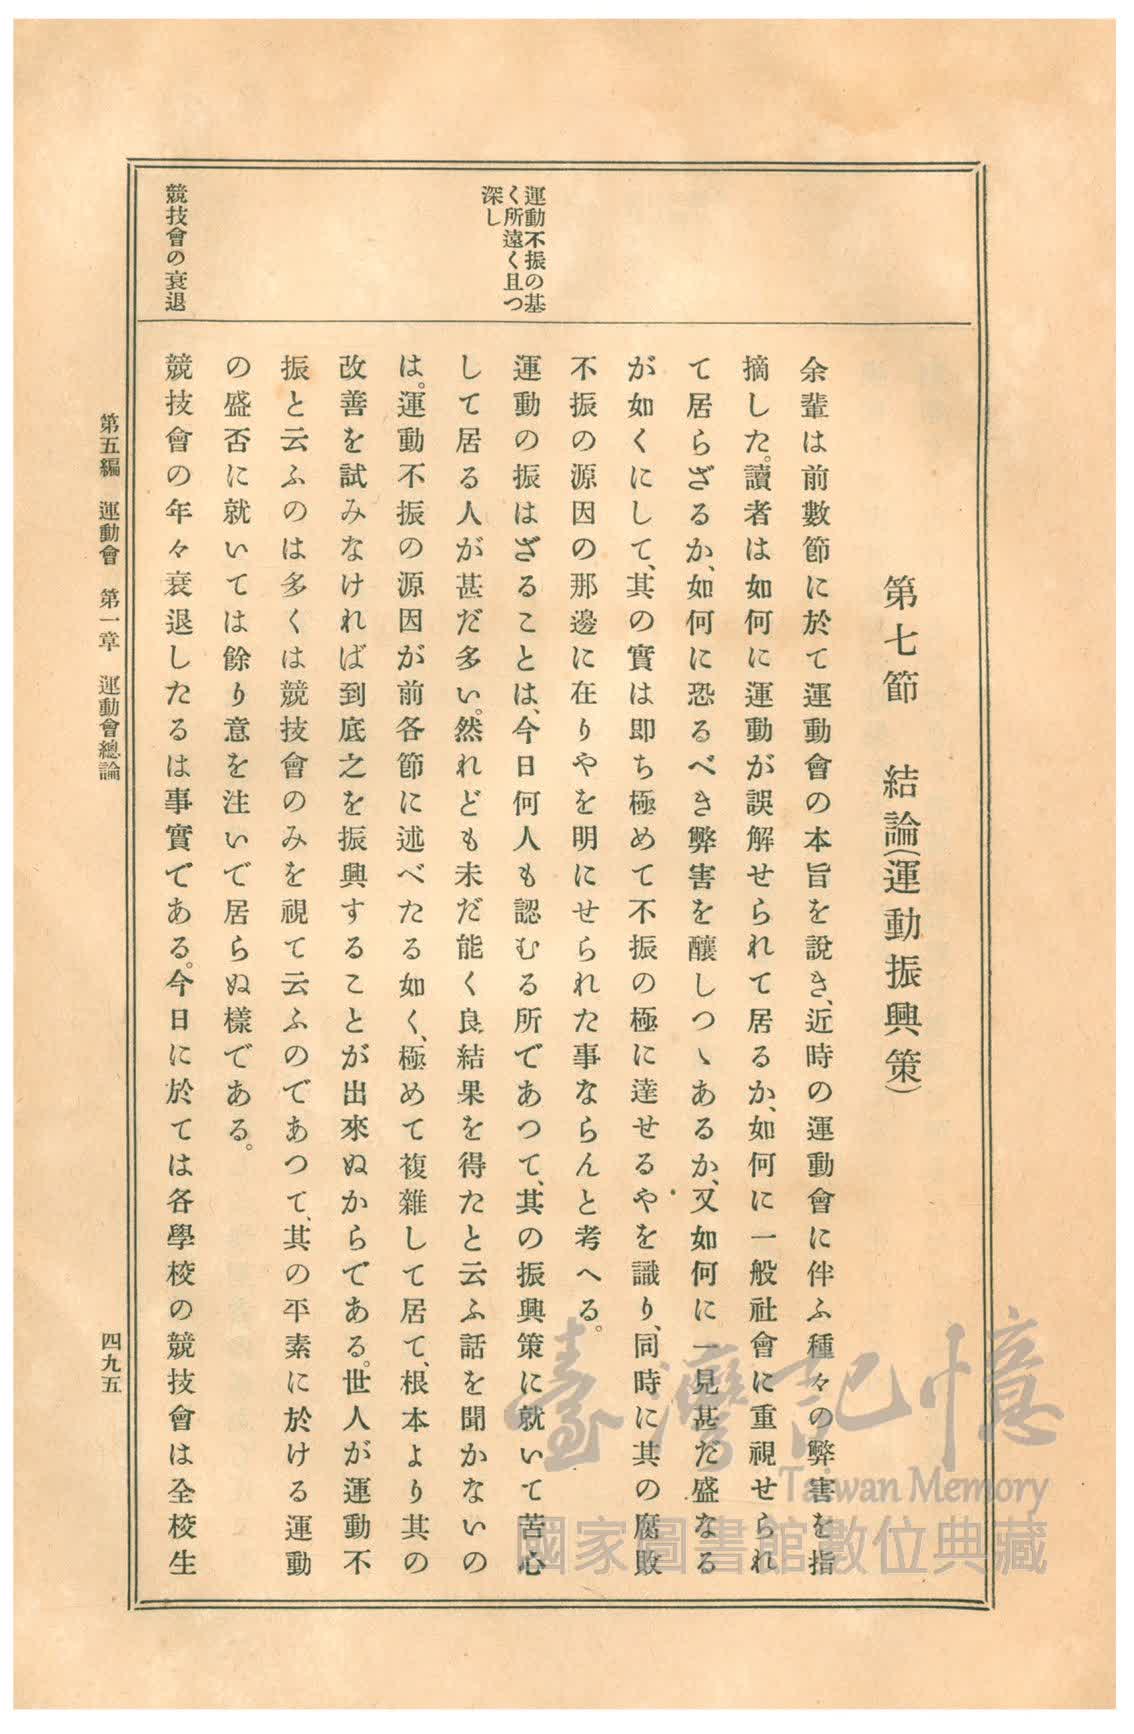 運動不振の基
く所遠く且つ
深し
競技會の衰退
第七節　結論(運動振興策)
余輩は前數節に於て運動會の本旨を說き、近時の運動會に伴ふ種々の弊害を指
摘した。讀者は如何に運動が誤解せられて居るか、如何に一般社會に重視せられ
て居らざるか、如何に恐るべき弊害を釀しつゝあるか、又如何に一見甚だ盛なる
が如くにして、其の實は卽ち極めて不振の極に達せるやを識り、同時に其の腐敗
不振の源因の那邊に在りやを明にせられた事ならんと考へる。
運動の振はざることは、今日何人も認むる所であつて、其の振興策に就いて苦心
して居る人が甚だ多い。然れども未だ能く良結果を得たと云ふ話を聞かないの
は。運動不振の源因が前各節に述べたる如く、極めて複雜して居て、根本より其の
改善を試みなければ到底之を振興することが出來ぬからである。世人が運動不
振と云ふのは多くは競技會のみを視て云ふのであつて、其の平素に於ける運動
の盛否に就いては餘り意を注いで居らぬ樣である。
競技會の年々衰退したるは事實である。今日に於ては各學校の競技會は全校生
第五編　運動會　第一章　運動會總論
四九五
臺灣記憶
Taiwan Memory
國家圖書館數位典藏